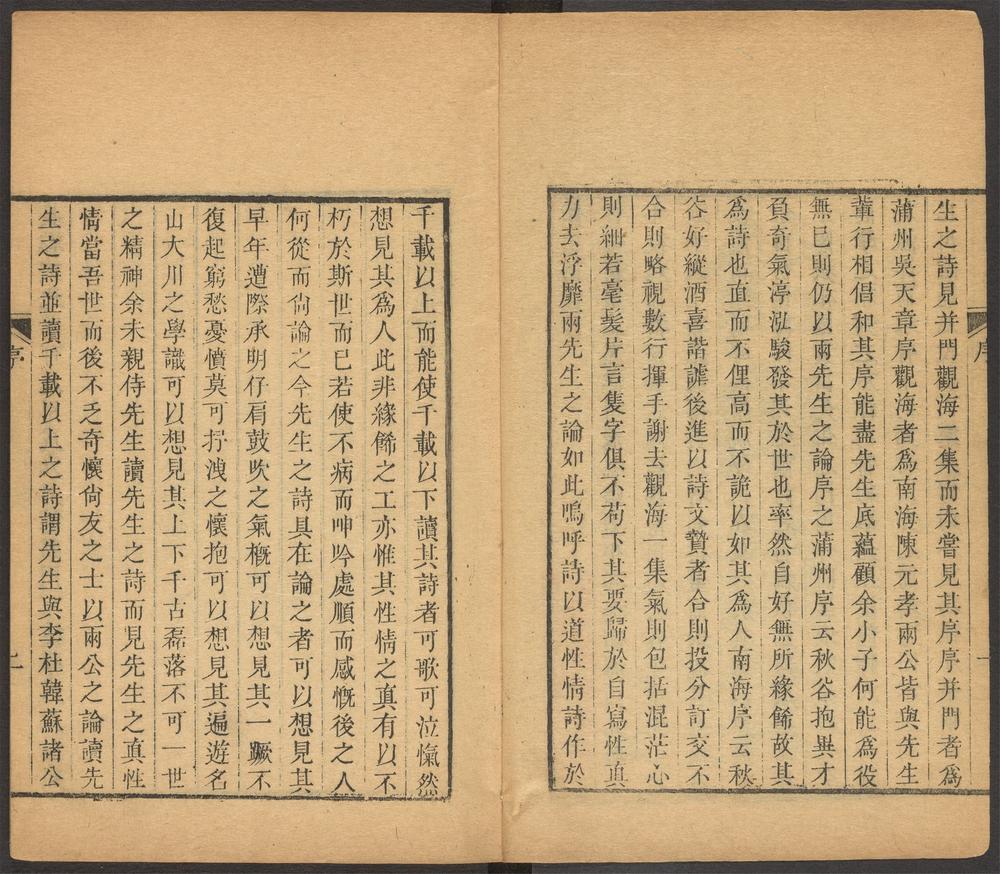 生之詩見并門觀海二集而未嘗見其序序并門者爲
蒲州吳天章序觀海者爲南海陳元孝兩公皆與先生
輩行相倡和其序能盡先生底蘊顧余小子何能爲役
無已則仍以兩先生之論序之蒲州序云秋谷抱異才
負奇氣渟泓駿發其於世也率然自好無所緣餙故其
爲詩也直而不俚高而不詭以如其爲人南海序云秋
谷好縱酒喜諧謔後進以詩文贄者合則投分訂交不
合則略視數行揮手謝去觀海一集氣則包括混茫心
則細若毫髮片言隻字俱不苟下其要歸於自寫性真
力去浮靡兩先生之論如此嗚呼詩以道性情詩作於
千載以上而能使千載以下讀其詩者可歌可泣愾然
想見其爲人此非緣餙之工亦惟其性情之真有以不
朽於斯世而已若使不病而呻吟處順而感慨後之人
何從而尙論之今先生之詩具在論之者可以想見其
早年遭際承明仔肩鼓吹之氣概可以想見其一蹶不
復起窮愁憂憤莫可抒洩之懷抱可以想見其遍遊名
山大川之學識可以想見其上下千古磊落不可一世
之精神余未親侍先生讀先生之詩而見先生之真性
情當吾世而後不乏奇懷尙友之士以兩公之論讀先
生之詩並讀千載以上之詩謂先生與李杜韓蘇諸公
序
一
序
二